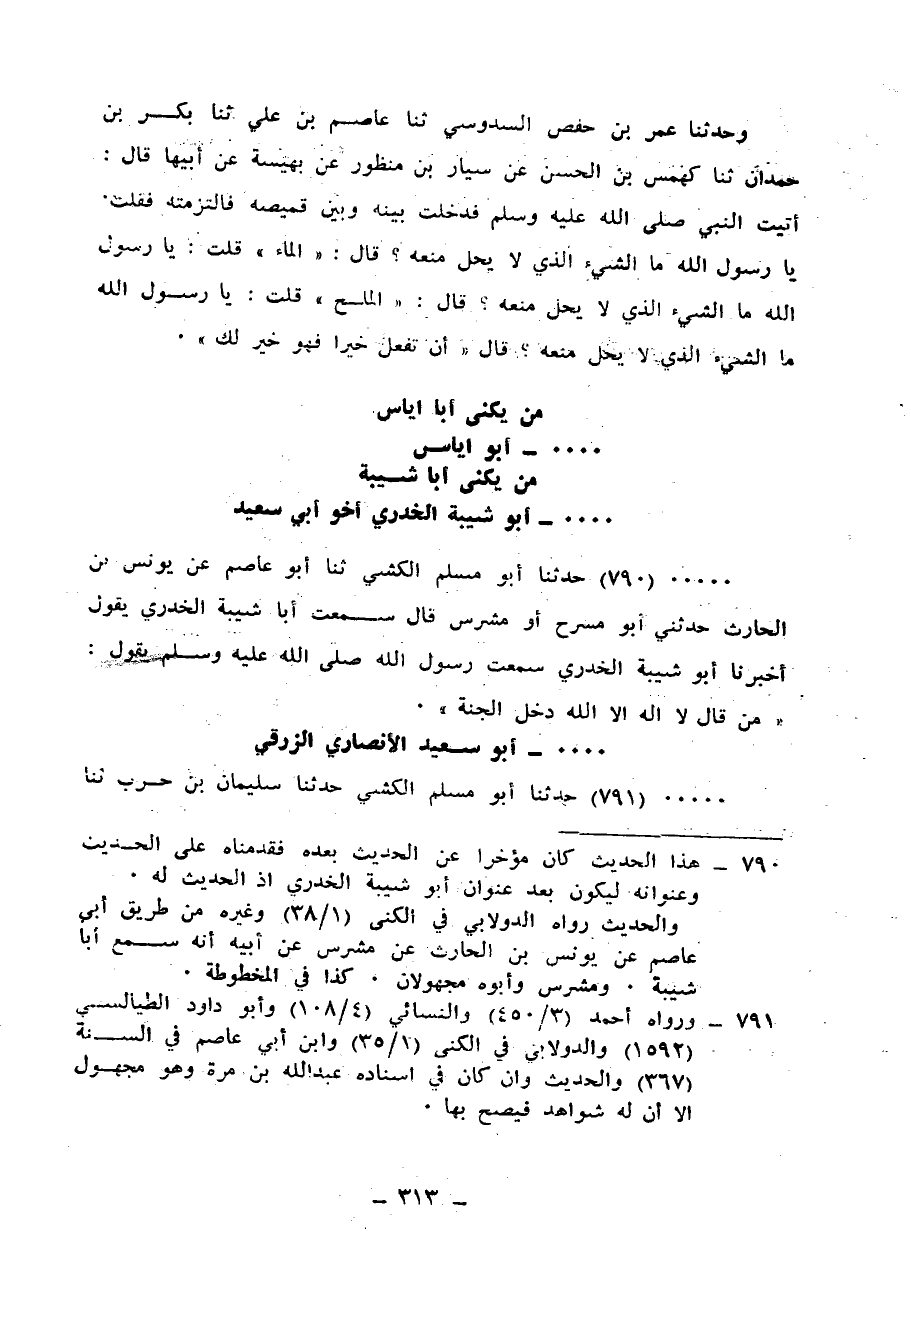 وحدثنا عمر بن حفص السدوسي ثنا عاصم بن علي ثنا بكر بن
حمدان ثنا كهمس بن الحسن عن سيار بن منظور عن بهيسة عن أبيها قال :
أتيت النبي صلى الله عليه وسلم فدخلت بينه وبين قميصه فالتزمته فقلت .
يا رسول الله ما الشيء الذي لا يحل منعه ؟ قال : « الماء » قلت : يا رسول
الله ما الشيء الذي لا يحل منعه ؟ قال : « الملح » قلت : يا رسول الله
ما الشيء الذي لا يحل منعه ؟ قال « أن تفعل خيرا فهو خير لك » .
من يكنى أبا اياس
.... ـ أبو اياس
من يكنى أبا شيبة
.... ـ أبو شيبة الخدري أخو أبي سعيد
..... (٧٩٠) حدثنا أبو مسلم الكشي ثنا أبو عاصم عن يونس بن
الحارث حدثني أبو مسرح أو مشرس قال سمعت أبا شيبة الخدري يقول
أخبرنا أبو شيبة الخدري سمعت رسول الله صلى الله عليه وسلم يقول :
« من قال لا اله الا الله دخل الجنة » .
.... ـ أبو سعيد الأنصاري الزرقي
..... (٧٩١) حدثنا أبو مسلم الكشي حدثنا سليمان بن حرب ثنا
٧٩٠ ـ هذا الحديث كان مؤخرا عن الحديث بعده فقدمناه على الحديث
وعنوانه ليكون بعد عنوان أبو شيبة الخدري اذ الحديث له .
والحديث رواه الدولابي في الكنى (٣٨/١) وغيره من طريق أبي
عاصم عن يونس بن الحارث عن مشرس عن أبيه أنه سمع أبا
شيبة . ومشرس وأبوه مجهولان . كذا في المخطوطة .
٧٩١ ـ ورواه أحمد (٤٥٠/٣) والنسائي (١٠٨/٤) وأبو داود الطيالسي
(١٥٩٢) والدولابي في الكنى (٣٥/١) وابن أبي عاصم في السنة
(٣٦٧) والحديث وان كان في اسناده عبدالله بن مرة وهو مجهول
الا أن له شواهد فيصح بها .
ـ ٣١٣ ـ